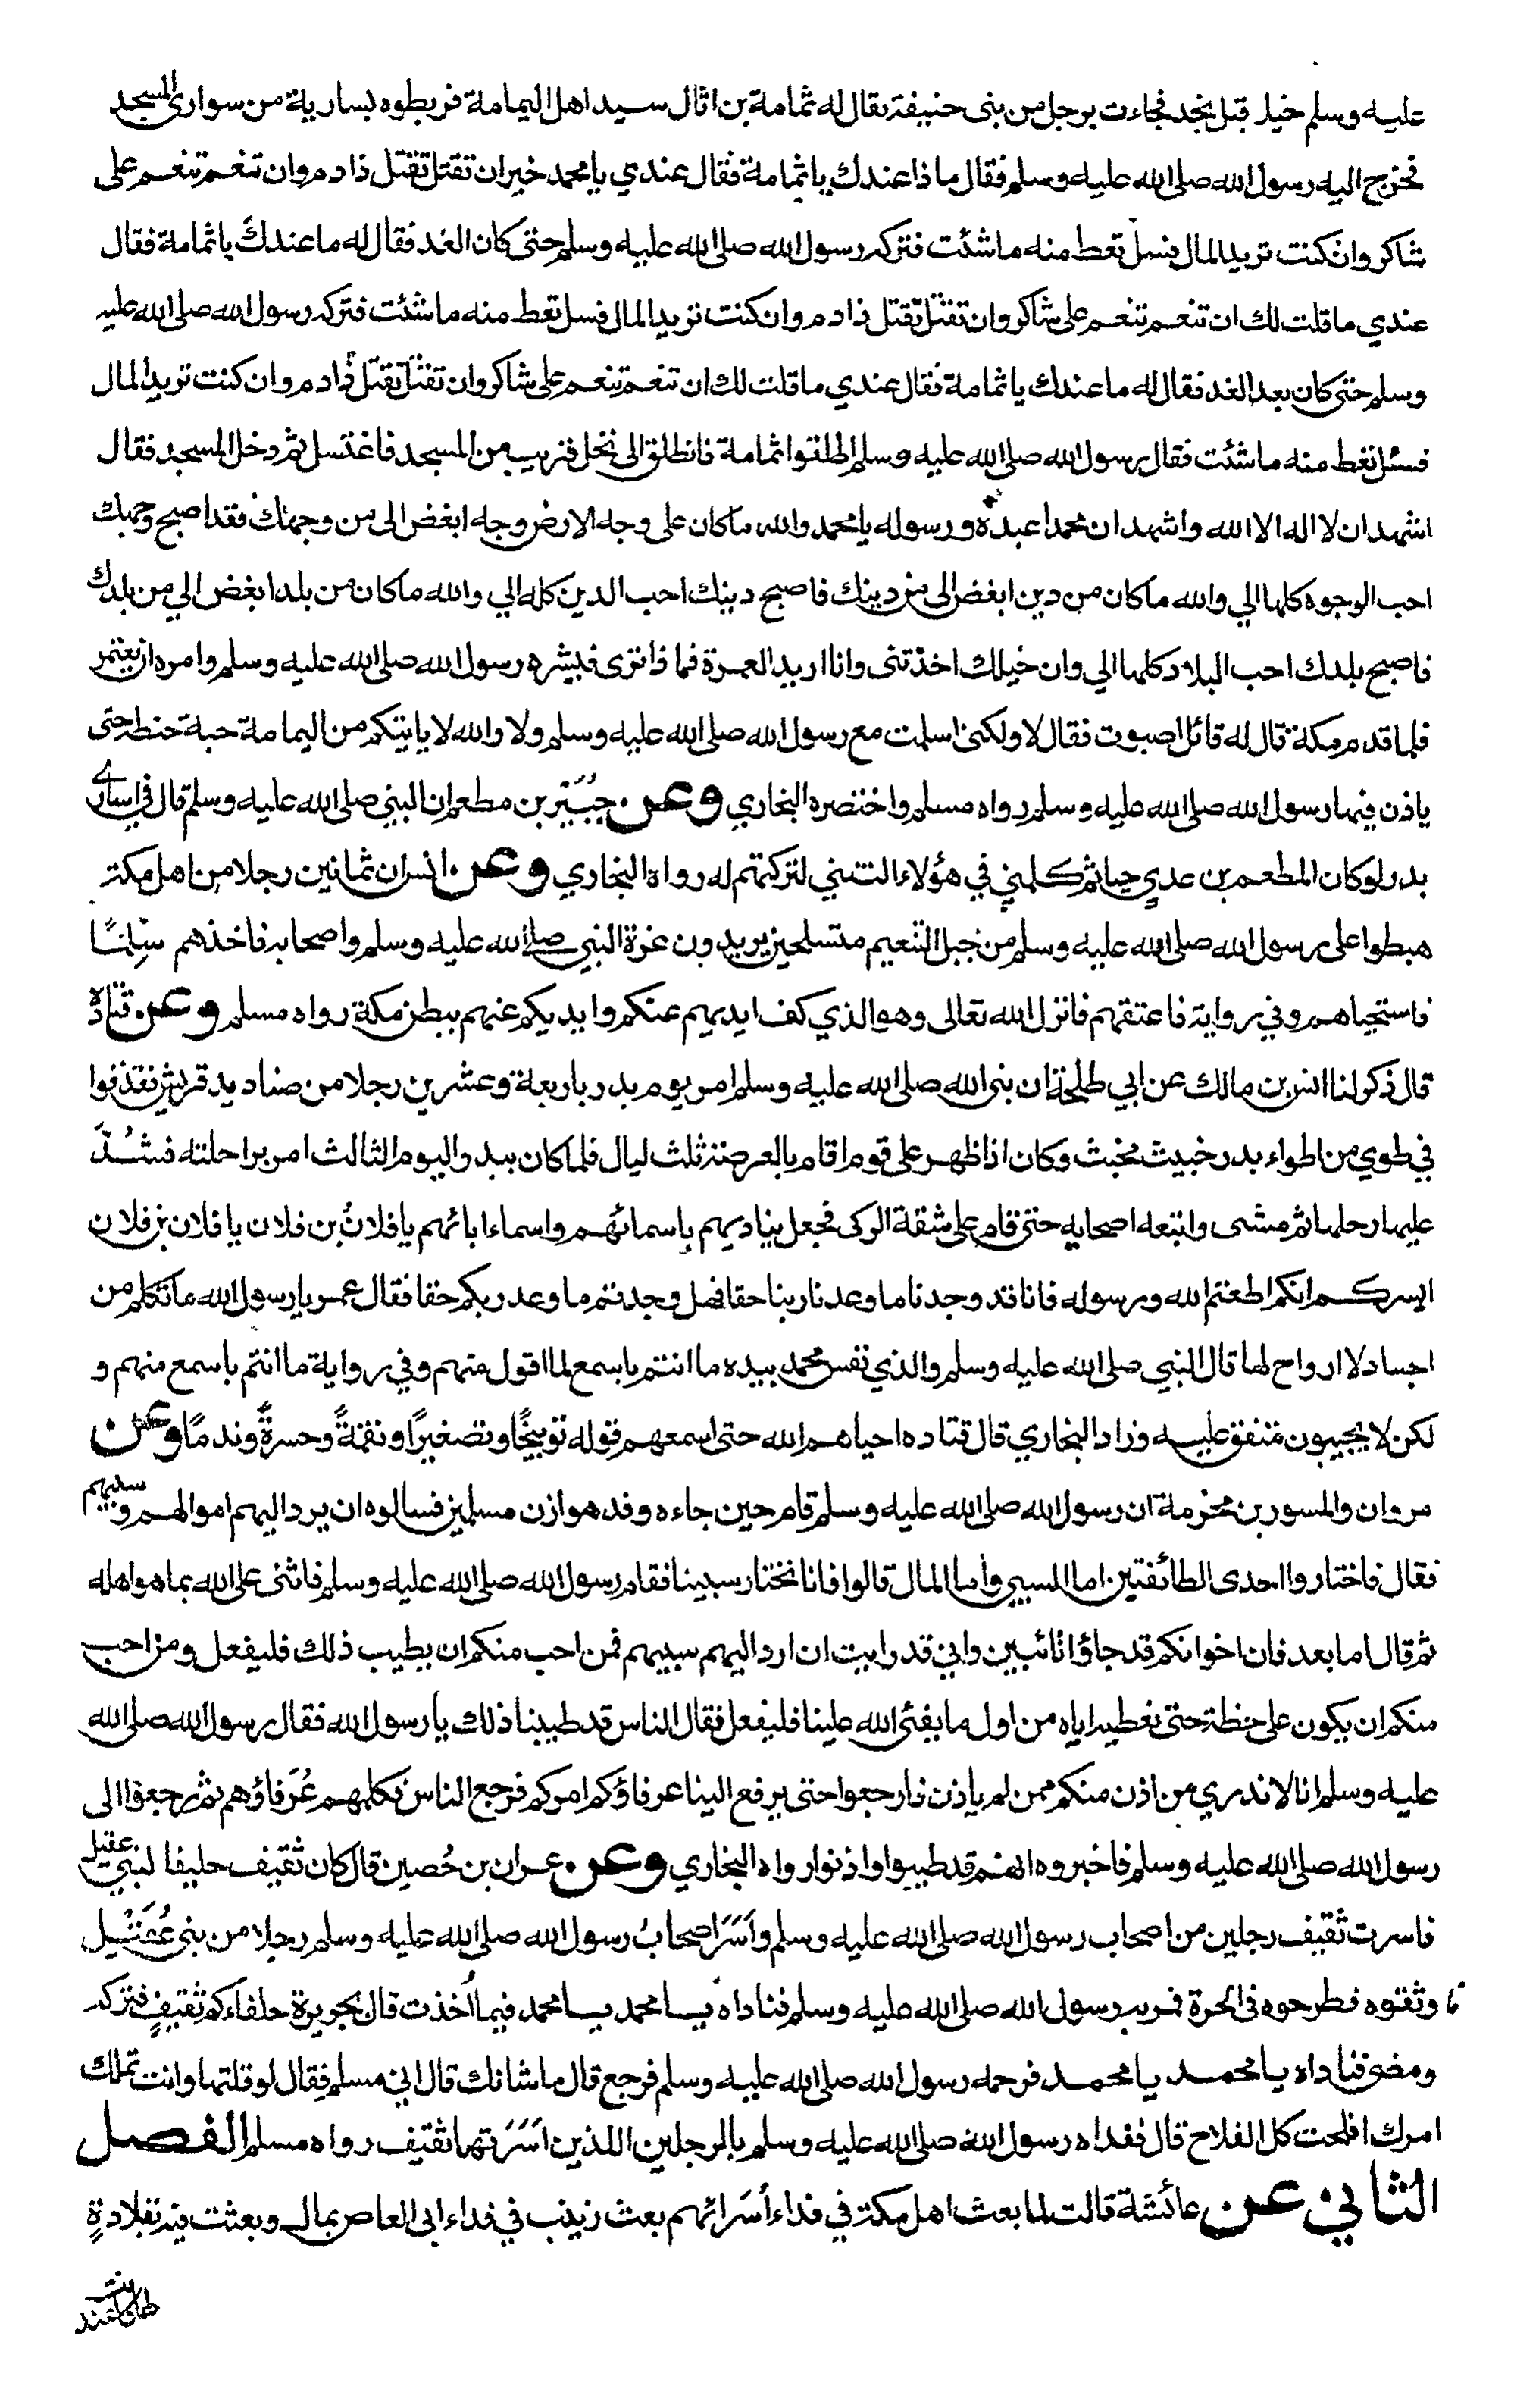 عليه وسلم خيلا قبل نجد فجاءت برجل من بنى حنيفة يقال له ثمامة بن اثال سيد اهل اليمامة فربطوه بسارية من سوارى المسجد
فخرج اليه رسول الله صلى الله عليه وسلم فقال ماذا عندك يا ثمامة فقال عندي يا محمد خير ان تقتل تقتل ذا دم وان تنعم تنعم على
شاكر وان كنت تريد المال فسل تعط منه ما شئت فتركه رسول الله صلى الله عليه وسلم حتى كان الغد فقال له ما عندك يا ثمامة فقال
عندي ما قلت لك ان تنعم تنعم على شاكر وان تقتل تقتل ذا دم وان كنت تريد المال فسل تعط منه ما شئت فتركه رسول الله صلى الله عليه
وسلم حتى كان بعد الغد فقال له ما عندك يا ثمامة فقال عندي ما قلت لك ان تنعم تنعم على شاكر وان تقتل تقتل ذا دم وان كنت تريد المال
فسئل تعط منه ما شئت فقال رسول الله صلى الله عليه وسلم اطلقوا ثمامة فانطلق الى نخل قريب من المسجد فاغتسل ثم دخل المسجد فقال
اشهد ان لا اله الا الله واشهد ان محمدا عبده ورسوله يا محمد والله ما كان على وجه الارض وجه ابغض الى من وجهك فقد اصبح وجهك
احب الوجوه كلها الي والله ما كان من دين ابغض الى من دينك فاصبح دينك احب الدين كله الي والله ما كان من بلد ابغض الي من بلدك
فاصبح بلدك احب البلاد كلها الي وان خيلك اخذتنى وانا اريد العمرة فما ذا ترى فبشره رسول الله صلى الله عليه وسلم وامره ان يعتمر
فلما قدم مكة قال له قائل اصبوت فقال لا ولكنى اسلمت مع رسول الله صلى الله عليه وسلم ولا والله لا ياتيكم من اليمامة حبة حنطة حتى
ياذن فيها رسول الله صلى الله عليه وسلم رواه مسلم واختصره البخاري وعن جُبَيْر بن مطعم ان النبي صلى الله عليه وسلم قال في اسارى
بدر لو كان المطعم بن عدي حيا ثم كلمني في هؤلاء النتنى لتركتهم له رواه البخاري وعن انس ان ثمانين رجلا من اهل مكة
هبطوا على رسول الله صلى الله عليه وسلم من جبل التنعيم متسلحين يريدون غرة النبي صلى الله عليه وسلم واصحابه فاخذهم سِلْمًا
فاستحياهم وفي رواية فاعتقهم فانزل الله تعالى وهو الذي كف ايديهم عنكم وايديكم عنهم ببطن مكة رواه مسلم وعن قتادة
قال ذكر لنا انس بن مالك عن ابي طلحة ان نبى الله صلى الله عليه وسلم امر يوم بدر باربعة وعشرين رجلا من صناديد قريش فقذفوا
في طوي من اطواء بدر خبيث مخبث وكان اذا ظهر على قوم اقام بالعرصة ثلث ليال فلما كان ببدر اليوم الثالث امر براحلته فشُدَّ
عليها رحلها ثم مشى واتبعه اصحابه حتى قام على شقة الركى فجعل يناديهم باسمائهم واسماء ابائهم يا فلانُ بن فلان يا فلان بن فلان
ايسركم انكم اطعتم الله ورسوله فانا قد وجدنا ما وعدنا ربنا حقا فهل وجدتم ما وعد ربكم حقا فقال عمر يا رسول الله ما تكلم من
اجساد لا ارواح لها قال النبي صلى الله عليه وسلم والذي نفس محمد بيده ما انتم باسمع لما اقول منهم وفي رواية ما انتم باسمع منهم و
لكن لا يجيبون متفق عليه وزاد البخاري قال قتاده احياهم الله حتى اسمعهم قوله توبيخًا وتصغيرًا ونقمةً وحسرةً وندمًا وعن
مروان والمسور بن مخرمة ان رسول الله صلى الله عليه وسلم قام حين جاءه وفد هوازن مسلمين فسالوه ان يرد اليهم اموالهم وسبيهم
فقال فاختاروا احدى الطائفتين اما السبي واما المال قالوا فانا نختار سبينا فقام رسول الله صلى الله عليه وسلم فاثنى على الله بما هو اهله
ثم قال اما بعد فان اخوانكم قد جاؤا تائبين واني قد رايت ان ارد اليهم سبيهم فمن احب منكم ان يطيب ذلك فليفعل ومن احب
منكم ان يكون على حظه حتى نعطيه اياه من اول ما يفئ الله علينا فليفعل فقال الناس قد طيبنا ذلك يا رسول الله فقال رسول الله صلى الله
عليه وسلم انا لا ندري من اذن منكم ممن لم ياذن فارجعوا حتى يرفع الينا عرفاؤكم امركم فرجع الناس فكلهم عُرَفاؤهم ثم رجعوا الى
رسول الله صلى الله عليه وسلم فاخبروه انهم قد طيبوا واذنوا رواه البخاري وعن عمران بن حُصين قال كان ثقيف حليفا لبني عقيل
فاسرت ثقيف رجلين من اصحاب رسول الله صلى الله عليه وسلم وأَسَرَ اصحابُ رسول الله صلى الله عليه وسلم رجلا من بنى عُقَيْل
فاوثقوه فطرحوه فى الحرة فمر به رسول الله صلى الله عليه وسلم فناداه يا محمد يا محمد فيما أُخذت قال بجريرة حلفاءكم ثقيفٍ فتركه
ومضى فناداه يا محمد يا محمد فرحمه رسول الله صلى الله عليه وسلم فرجع قال ما شانك قال اني مسلم فقال لو قلتها وانت تملك
امرك افلحت كل الفلاح قال ففداه رسول الله صلى الله عليه وسلم بالرجلين اللذين اَسَرَتهما ثقيف رواه مسلم الفصل
الثاني عن عائشة قالت لما بعث اهل مكة في فداء أُسَرائهم بعث زينب في فداء ابى العاص بمال وبعثت فيه بقلادةٍ